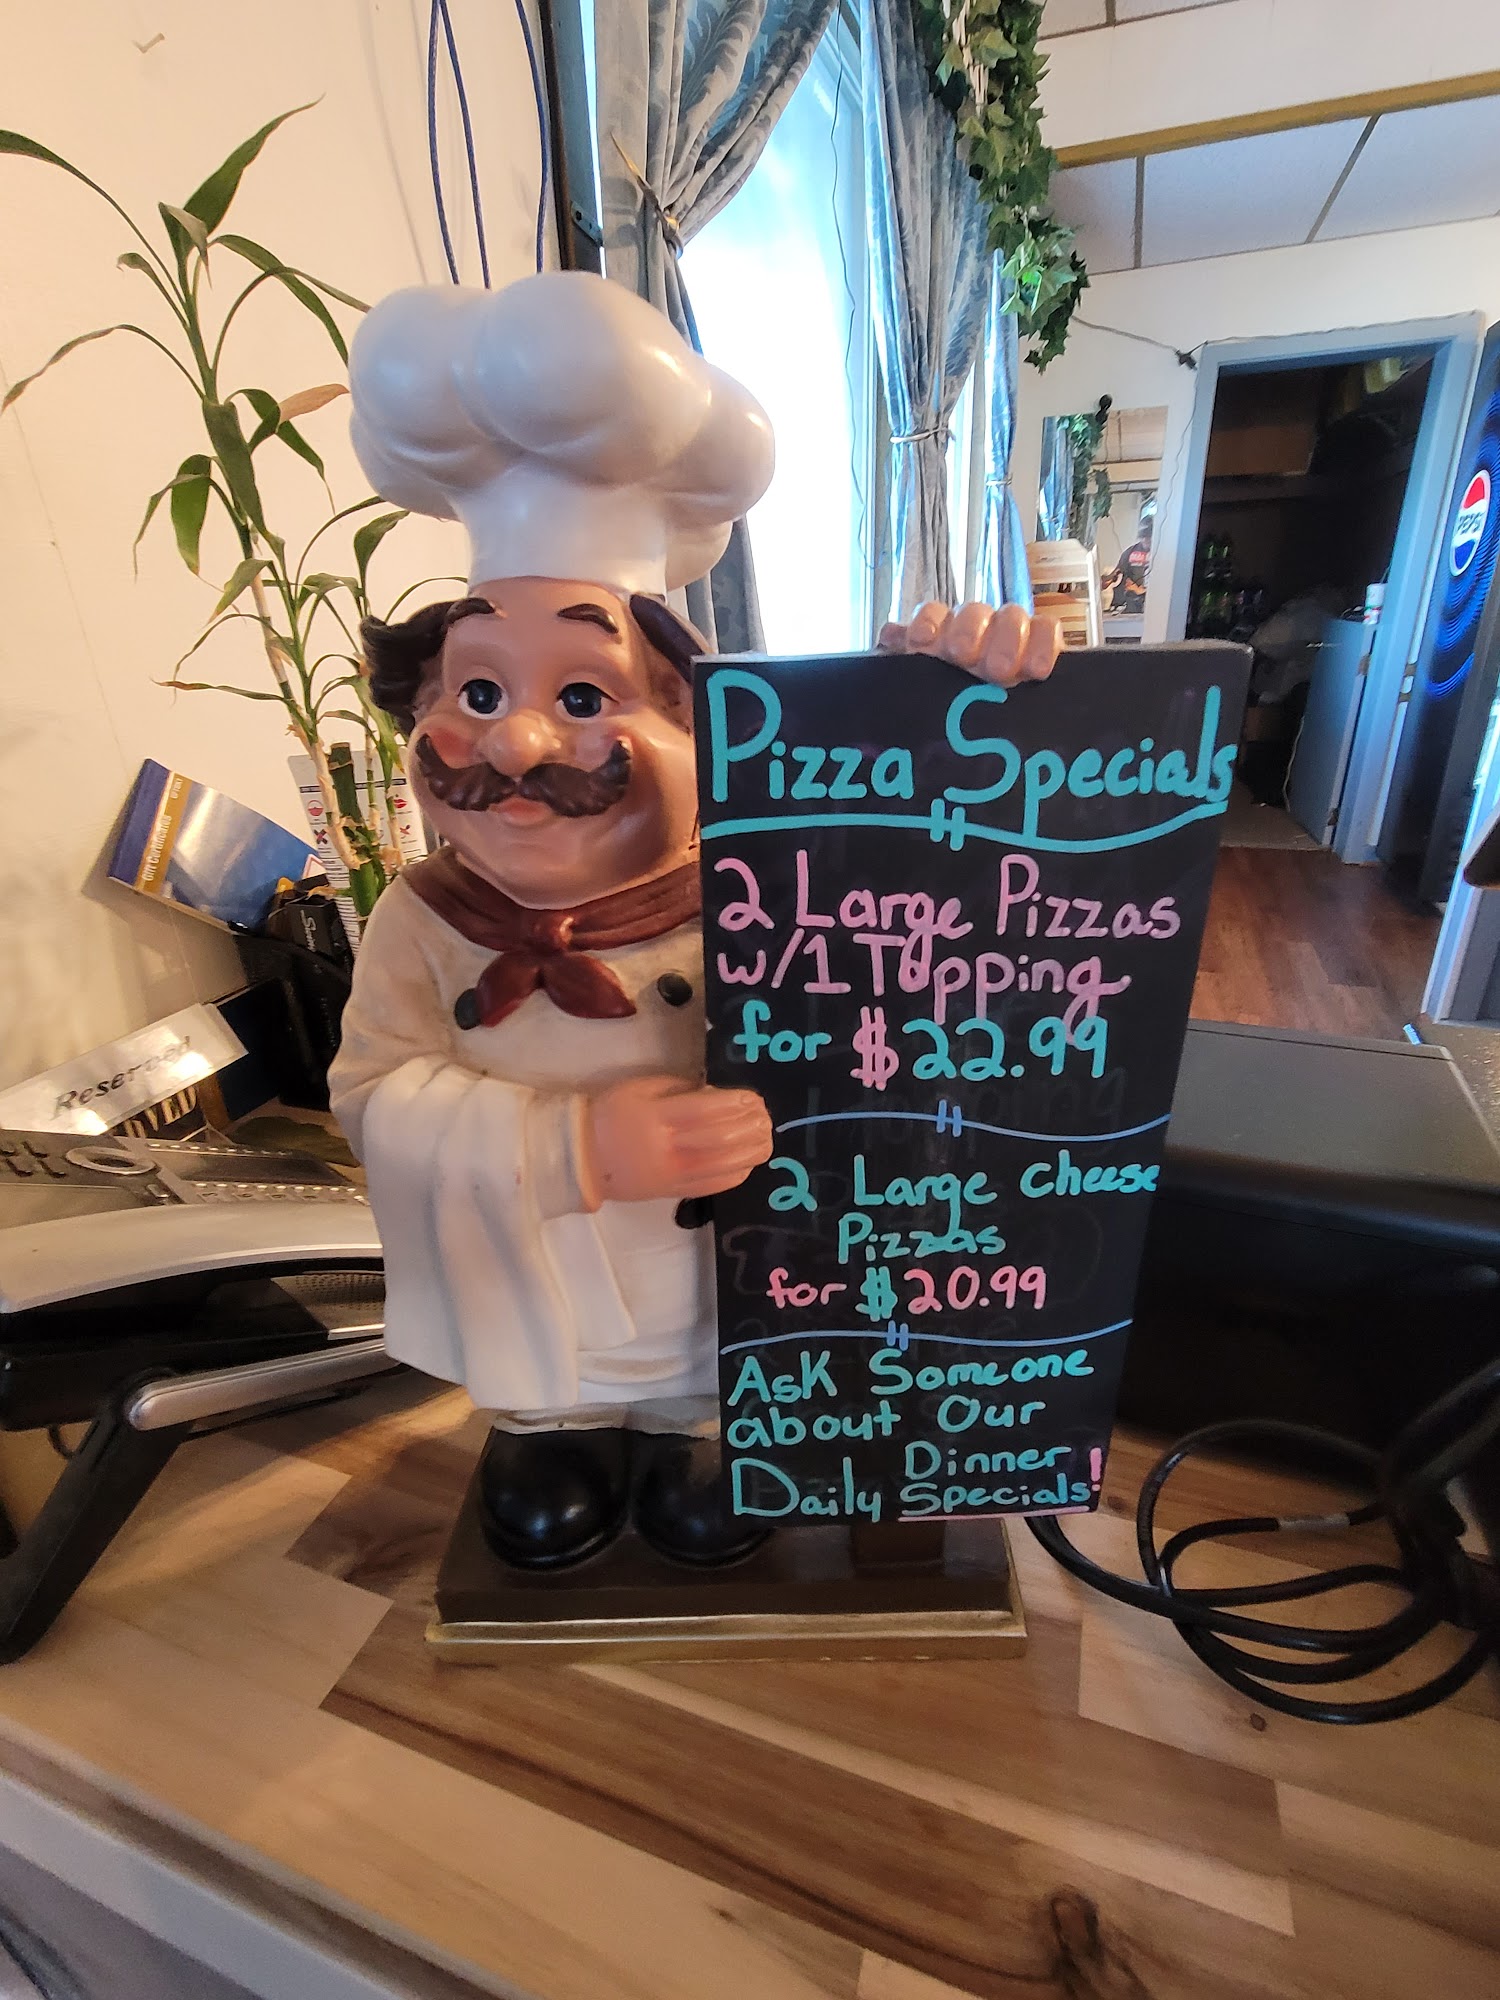 Pizza Specials
2 Large Pizzas
w/1 Topping
for $22.99
2 Large Cheese
Pizzas
for $20.99
Ask Someone
about Our
Daily Dinner
Specials!
Gift Certificates
Reserved
PEPSI